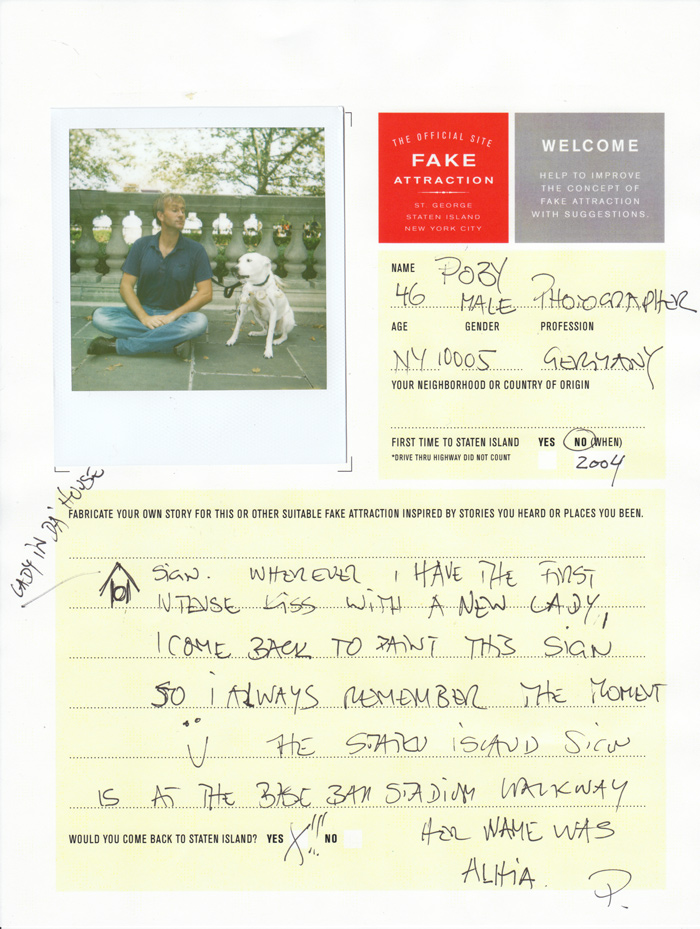 THE OFFICIAL SITE
FAKE
ATTRACTION
ST. GEORGE
STATEN ISLAND
NEW YORK CITY
WELCOME
HELP TO IMPROVE
THE CONCEPT OF
FAKE ATTRACTION
WITH SUGGESTIONS.
NAME POBY
46 MALE PHOTOGRAPHER
AGE GENDER PROFESSION
NY 10005 GERMANY
YOUR NEIGHBORHOOD OR COUNTRY OF ORIGIN
FIRST TIME TO STATEN ISLAND YES NO (WHEN)
*DRIVE THRU HIGHWAY DID NOT COUNT 2004
LADY IN DA' HOUSE
FABRICATE YOUR OWN STORY FOR THIS OR OTHER SUITABLE FAKE ATTRACTION INSPIRED BY STORIES YOU HEARD OR PLACES YOU BEEN.
SIGN. WHEREVER I HAVE THE FIRST
INTENSE KISS WITH A NEW LADY,
I COME BACK TO PAINT THIS SIGN
SO I ALWAYS REMEMBER THE MOMENT
THE STATEN ISLAND SIGN
IS AT THE BASE BALL STADIUM WALKWAY
WOULD YOU COME BACK TO STATEN ISLAND? YES X!!! NO
HER NAME WAS
P.